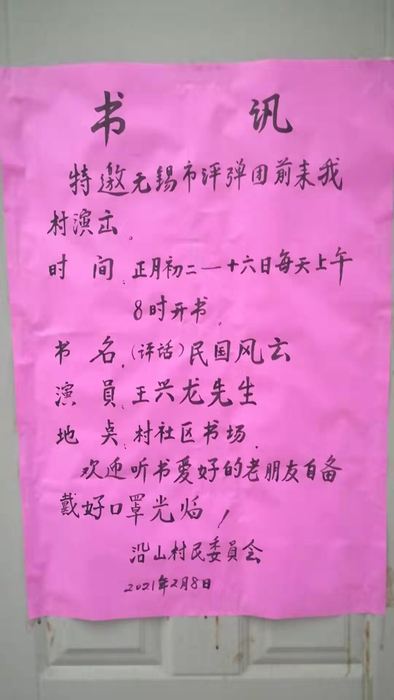 书 讯
特邀无锡市评弹团前来我
村演出。
时 间:正月初二一十六日每天上午
8时开书.
书 名:(评话)民国风云
演 員:王兴龙先生
地 点:村社区书场.
欢迎听书爱好的老朋友自备
戴好口罩光临!
沿山村民委員会
2021年2月8日